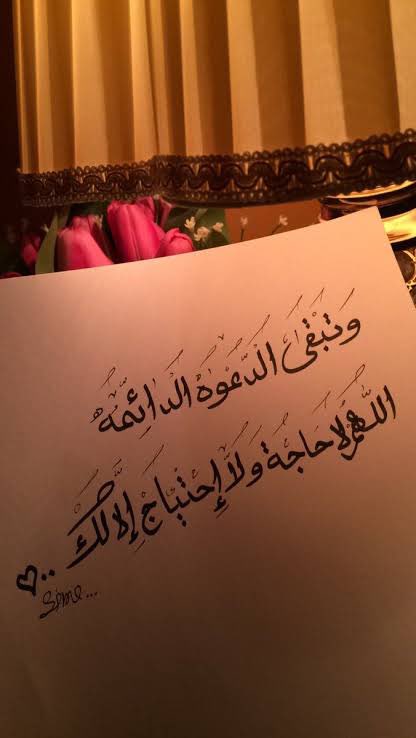 وَتبْقىٰ الدَّعْوَةُ الدائِمّه
اللَّهُمَّ لَا حَاجَة وَلَا إِحْتيَاجِ إلا لكَ ..♡